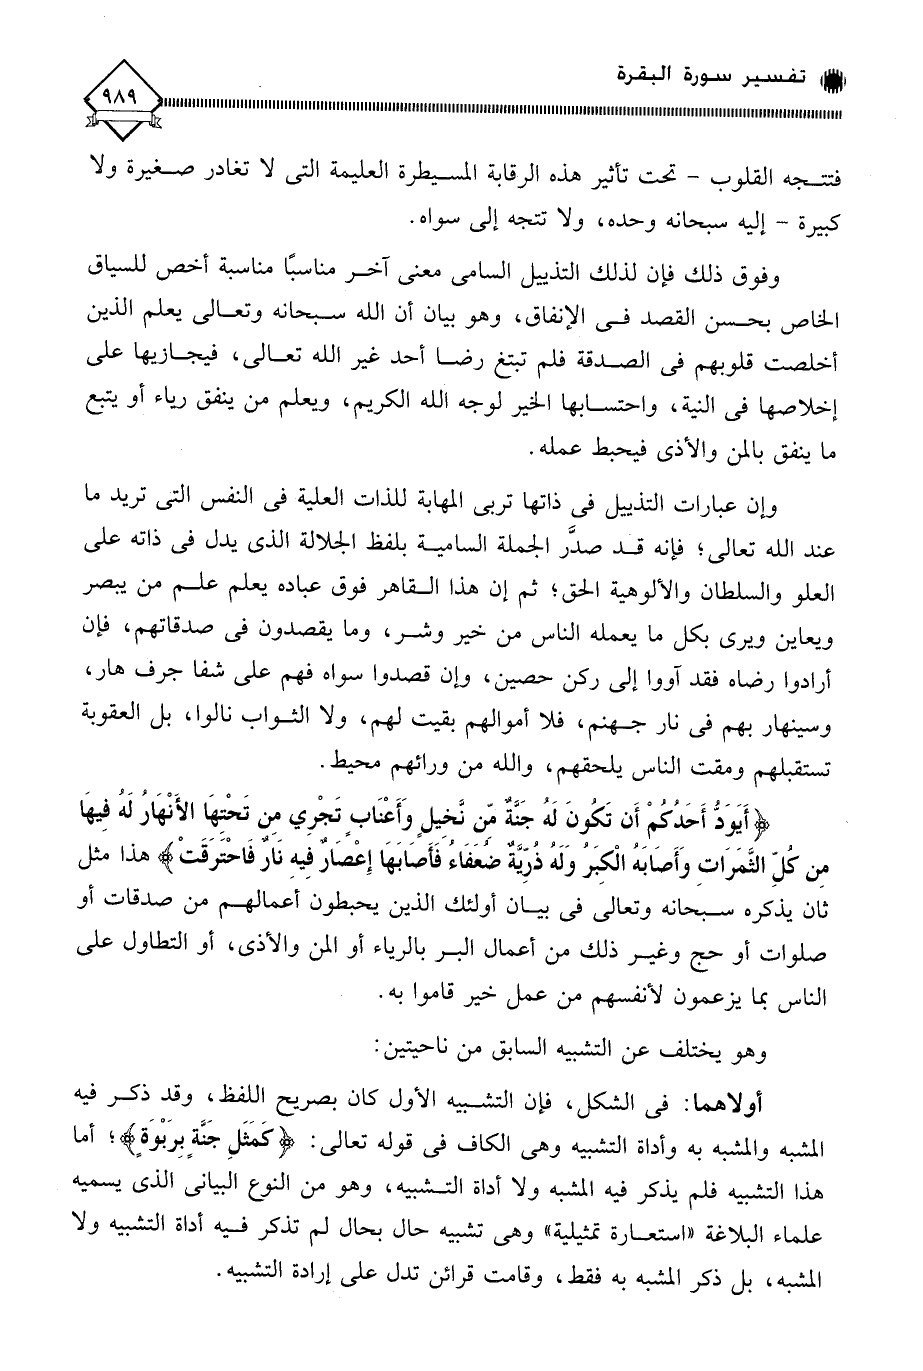 تفسير سورة البقرة
٩٨٩
فتتجه القلوب - تحت تأثير هذه الرقابة المسيطرة العليمة التى لا تغادر صغيرة ولا
كبيرة - إليه سبحانه وحده، ولا تتجه إلى سواه.
وفوق ذلك فإن لذلك التذييل السامى معنى آخر مناسبًا مناسبة أخص للسياق
الخاص بحسن القصد فى الإنفاق، وهو بيان أن الله سبحانه وتعالى يعلم الذين
أخلصت قلوبهم فى الصدقة فلم تبتغ رضا أحد غير الله تعالى، فيجازيها على
إخلاصها فى النية، واحتسابها الخير لوجه الله الكريم، ويعلم من ينفق رياء أو يتبع
ما ينفق بالمن والأذى فيحبط عمله.
وإن عبارات التذييل فى ذاتها تربى المهابة للذات العلية فى النفس التى تريد ما
عند الله تعالى؛ فإنه قد صدَّر الجملة السامية بلفظ الجلالة الذى يدل فى ذاته على
العلو والسلطان والألوهية الحق؛ ثم إن هذا القاهر فوق عباده يعلم علم من يبصر
ويعاين ويرى بكل ما يعمله الناس من خير وشر، وما يقصدون فى صدقاتهم، فإن
أرادوا رضاه فقد آووا إلى ركن حصين، وإن قصدوا سواه فهم على شفا جرف هار،
وسينهار بهم فى نار جهنم، فلا أموالهم بقيت لهم، ولا الثواب نالوا، بل العقوبة
تستقبلهم ومقت الناس يلحقهم، والله من ورائهم محيط.
﴿أَيَوَدُّ أَحَدُكُمْ أَن تَكُونَ لَهُ جَنَّةٌ مِّن نَّخِيلٍ وَأَعْنَابٍ تَجْرِي مِن تَحْتِهَا الأَنْهَارُ لَهُ فِيهَا
مِن كُلِّ الثَّمَرَاتِ وَأَصَابَهُ الْكِبَرُ وَلَهُ ذُرِّيَّةٌ ضُعَفَاءُ فَأَصَابَهَا إِعْصَارٌ فِيهِ نَارٌ فَاحْتَرَقَتْ﴾ هذا مثل
ثان يذكره سبحانه وتعالى فى بيان أولئك الذين يحبطون أعمالهم من صدقات أو
صلوات أو حج وغير ذلك من أعمال البر بالرياء أو المن والأذى، أو التطاول على
الناس بما يزعمون لأنفسهم من عمل خير قاموا به.
وهو يختلف عن التشبيه السابق من ناحيتين:
أولاهما: فى الشكل، فإن التشبيه الأول كان بصريح اللفظ، وقد ذكر فيه
المشبه والمشبه به وأداة التشبيه وهى الكاف فى قوله تعالى: ﴿كَمَثَلِ جَنَّةٍ بِرَبْوَةٍ﴾؛ أما
هذا التشبيه فلم يذكر فيه المشبه ولا أداة التشبيه، وهو من النوع البيانى الذى يسميه
علماء البلاغة «استعارة تمثيلية» وهى تشبيه حال بحال لم تذكر فيه أداة التشبيه ولا
المشبه، بل ذكر المشبه به فقط، وقامت قرائن تدل على إرادة التشبيه.